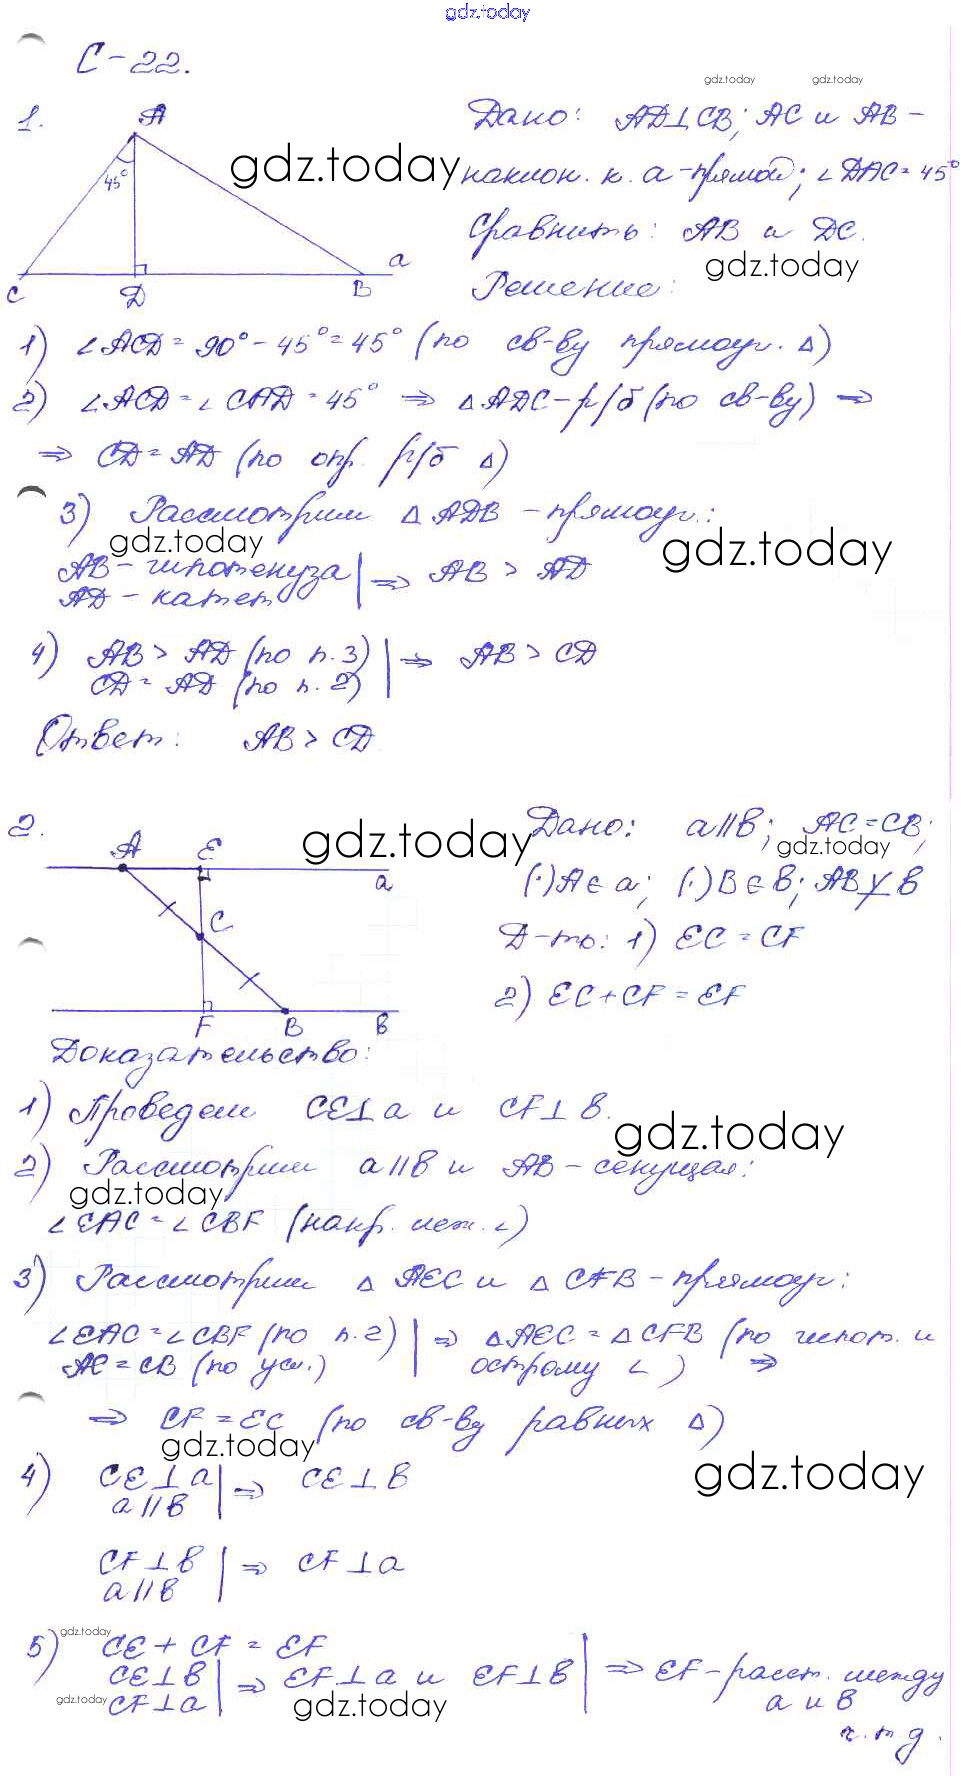 gdz.today
С-22.
gdz.today gdz.today
1. A 45° C D B a
Дано: AD⊥CB; AC и AB -
gdz.today
наклон. к. a-прямой; ∠DAC=45°
Сравнить: AB и DC.
gdz.today
Решение:
1) ∠ACD = 90° - 45° = 45° (по св-ву прямоуг. Δ)
2) ∠ACD = ∠CAD = 45° ⇒ ΔADC - р/б (по св-ву) ⇒
⇒ CD = AD (по опр. р/б Δ)
3) Рассмотрим ΔADB - прямоуг.:
gdz.today gdz.today
AB - гипотенуза | ⇒ AB > AD
AD - катет
4) AB > AD (по п.3) | ⇒ AB > CD
CD = AD (по п.2)
Ответ: AB > CD
2. A E a C F B в
gdz.today
Дано: a||в; AC=CB;
gdz.today
(·)A∈a; (·)B∈в; AB⊥̸в
Д-ть: 1) EC = CF
2) EC + CF = EF
Доказательство:
1) Проведем CE⊥a и CF⊥в.
gdz.today
2) Рассмотрим a||в и AB - секущая:
gdz.today
∠EAC = ∠CBF (накр. леж. ∠)
3) Рассмотрим ΔAEC и ΔCFB - прямоуг:
∠EAC = ∠CBF (по п.2) | ⇒ ΔAEC = ΔCFB (по гипот. и
AC = CB (по усл.) острому ∠) ⇒
⇒ CF = EC (по св-ву равных Δ)
gdz.today
gdz.today
4) CE⊥a | ⇒ CE⊥в
a||в
CF⊥в | ⇒ CF⊥a
a||в
gdz.today
5) CE + CF = EF
CE⊥в | ⇒ EF⊥a и EF⊥в | ⇒ EF - расст. между
gdz.today CF⊥a gdz.today a и в
ч.т.д.